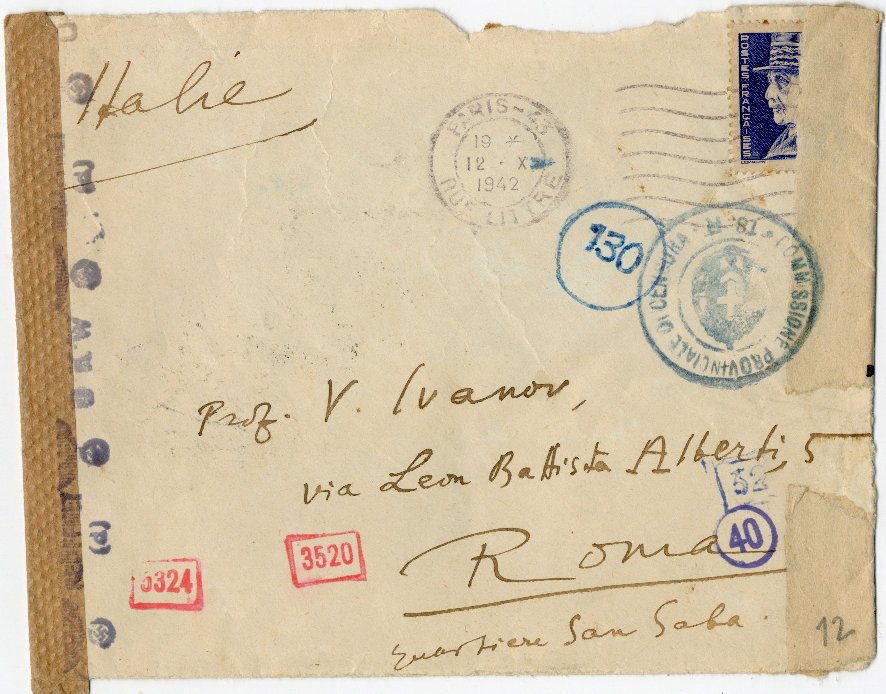 Italie
PARIS-43
19 *
12 · X
1942
RUE LITTRE
POSTES FRANÇAISES
130
COMMISSIONE PROVINCIALE DI CENSURA
Prof. V. Ivanov,
via Leon Battista Alberti, 5
32
40
Roma
3520
5324
quartiere San Saba.
12